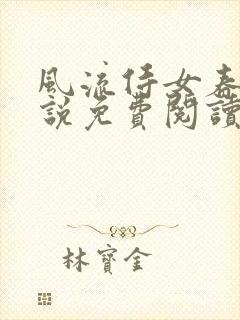 風流侍女春
說免費閱讀
林寶金